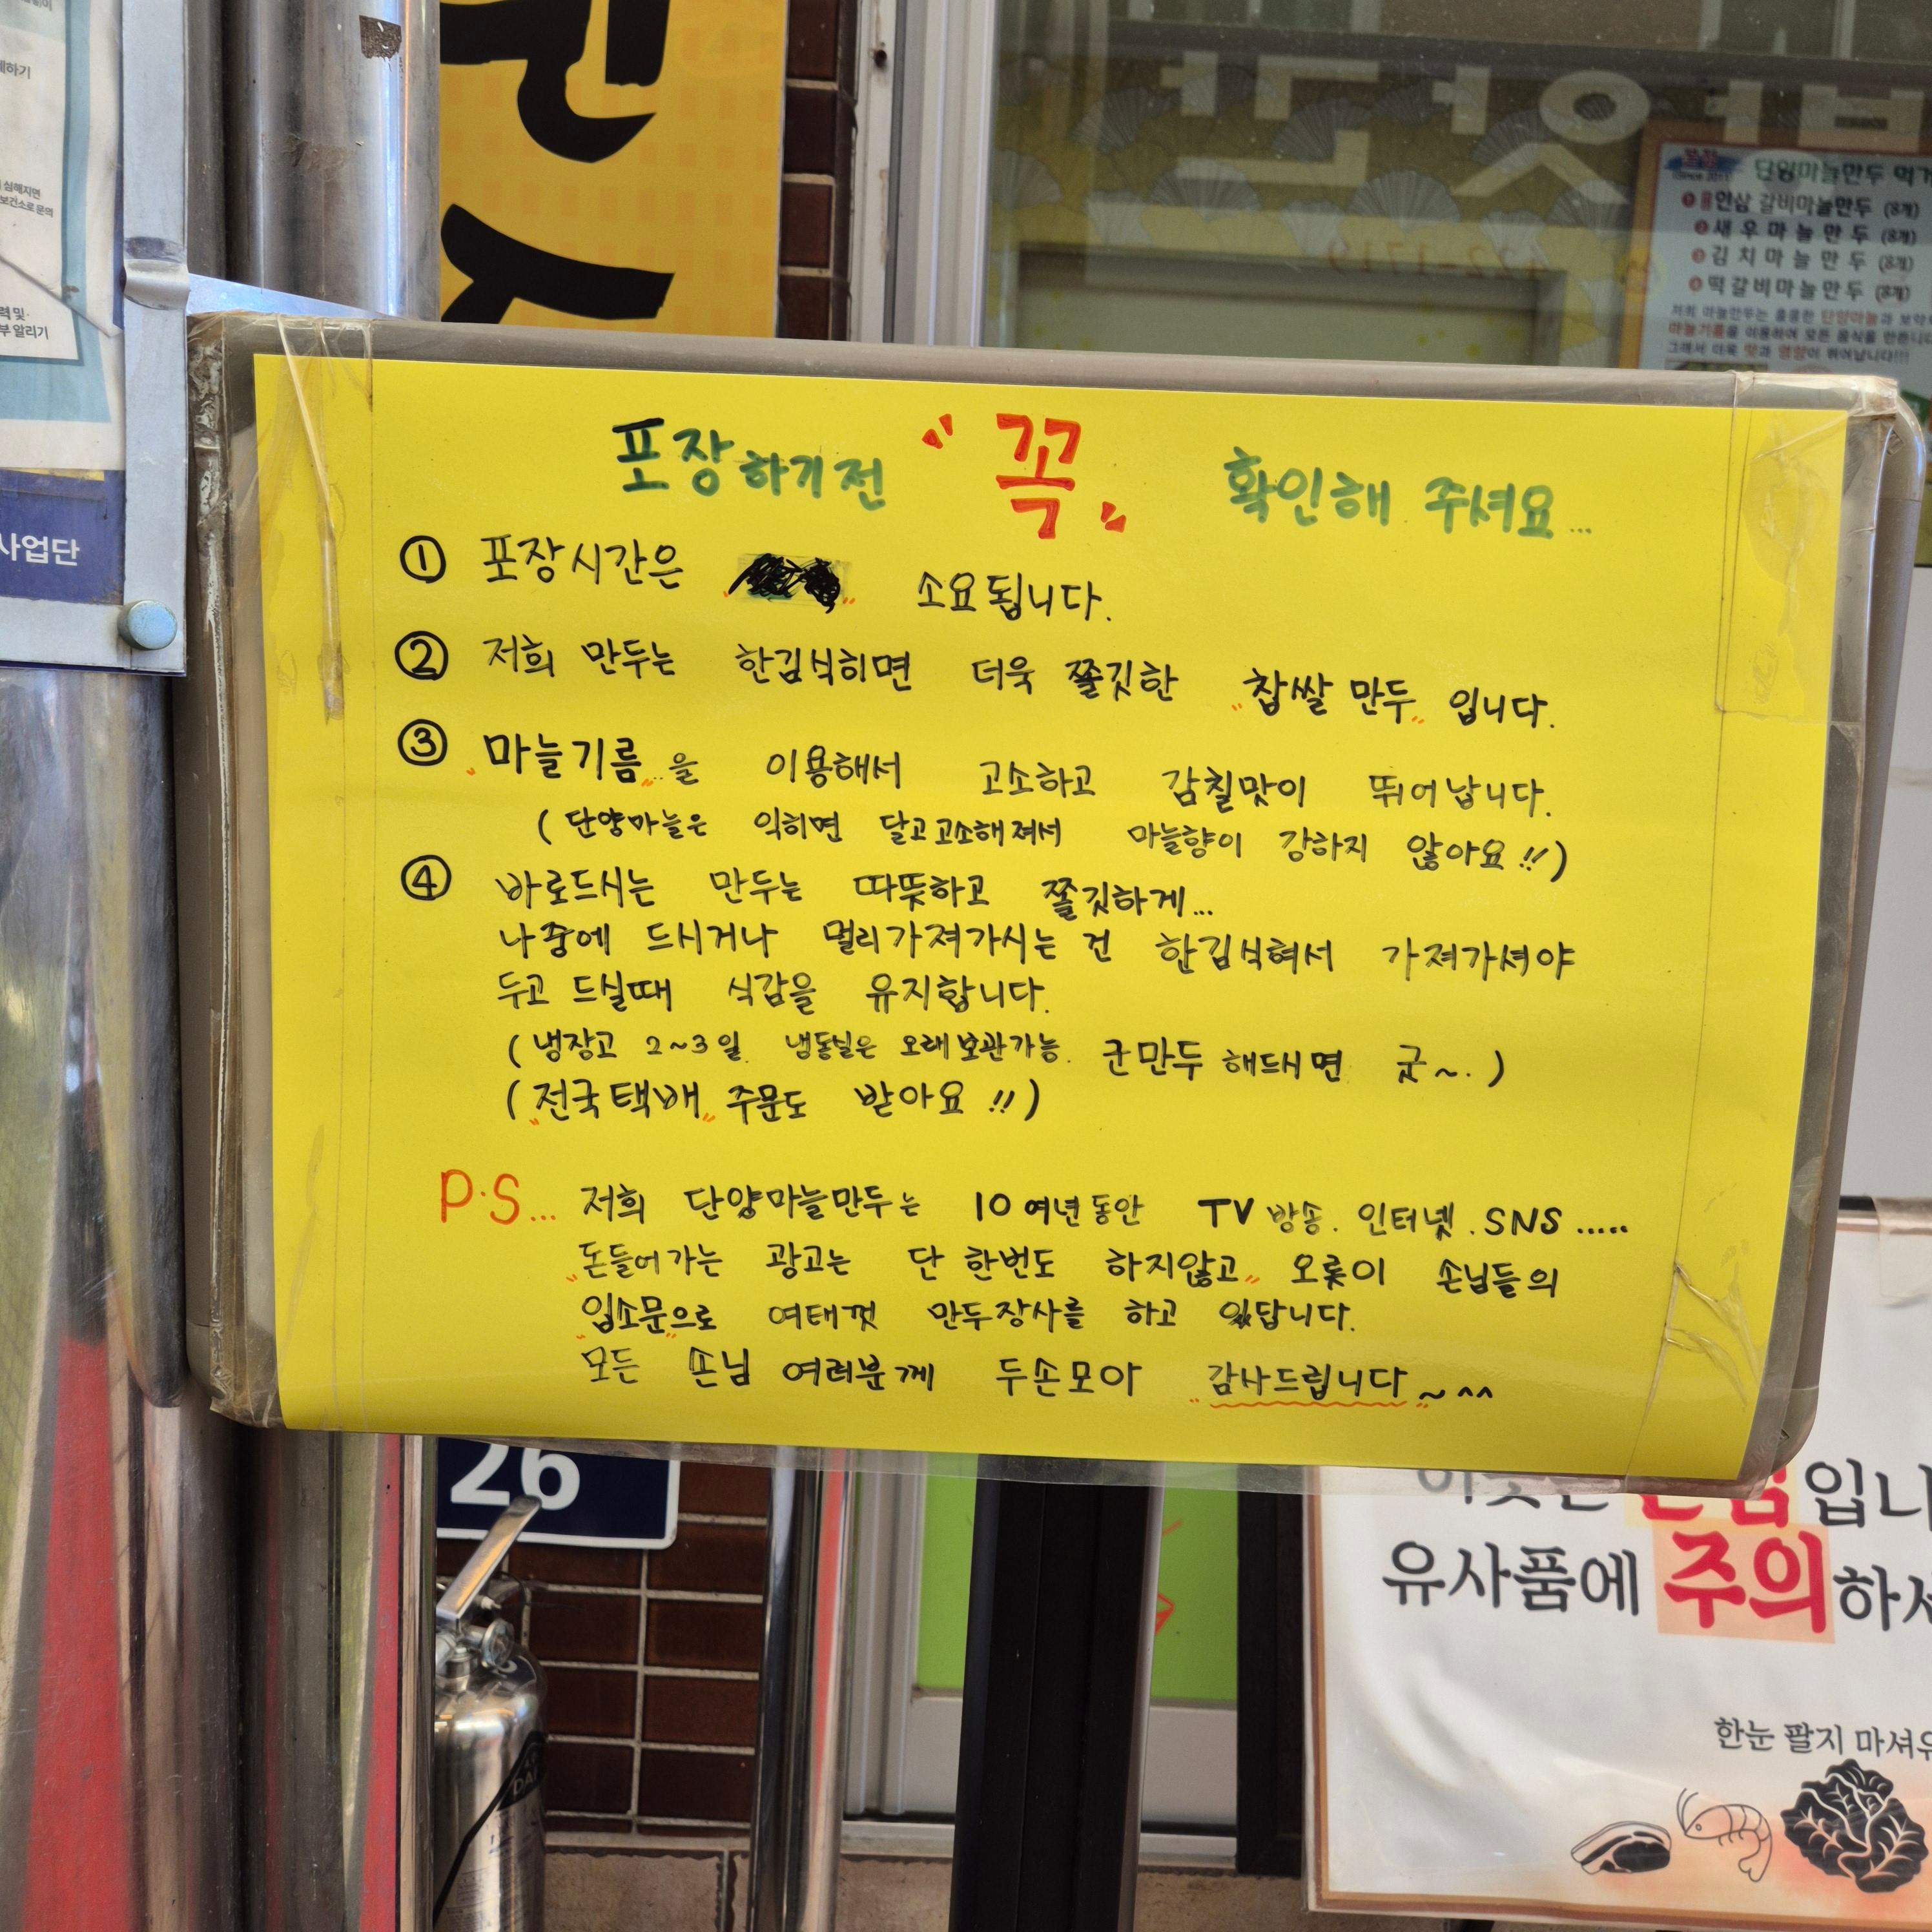 포장하기전 "꼭" 확인해 주셔요...
① 포장시간은 소요됩니다.
② 저희 만두는 한김식히면 더욱 쫄깃한 "찹쌀 만두" 입니다.
③ "마늘기름"을 이용해서 고소하고 감칠맛이 뛰어납니다.
(단양마늘은 익히면 달고고소해져서 마늘향이 강하지 않아요!!)
④ 바로드시는 만두는 따뜻하고 쫄깃하게...
나중에 드시거나 멀리가져가시는 건 한김식혀서 가져가셔야
두고 드실때 식감을 유지합니다.
(냉장고 2~3일. 냉동실은 오래보관가능. 군만두 해드시면 굿~.)
("전국택배" 주문도 받아요!!)
P.S... 저희 단양마늘만두는 10여년동안 TV방송. 인터넷. SNS.....
"돈들어가는 광고는 단 한번도 하지않고" 오롯이 손님들의
"입소문"으로 여태껏 만두장사를 하고 있답니다.
모든 손님 여러분께 두손모아 "감사드립니다"~^^
단양마늘만두
인삼 갈비마늘만두 (8개)
새우마늘만두 (8개)
김치마늘만두 (8개)
떡갈비마늘만두 (8개)
저희 마늘만두는 훌륭한 단양마늘과
마늘기름을 이용하여 모든 음식을 만듭니다
그래서 더욱 맛과 영양이 뛰어납니다!!!
422-1719
심해지면
보건소로 문의
알리기
사업단
26
유사품에 주의하
한눈 팔지 마셔